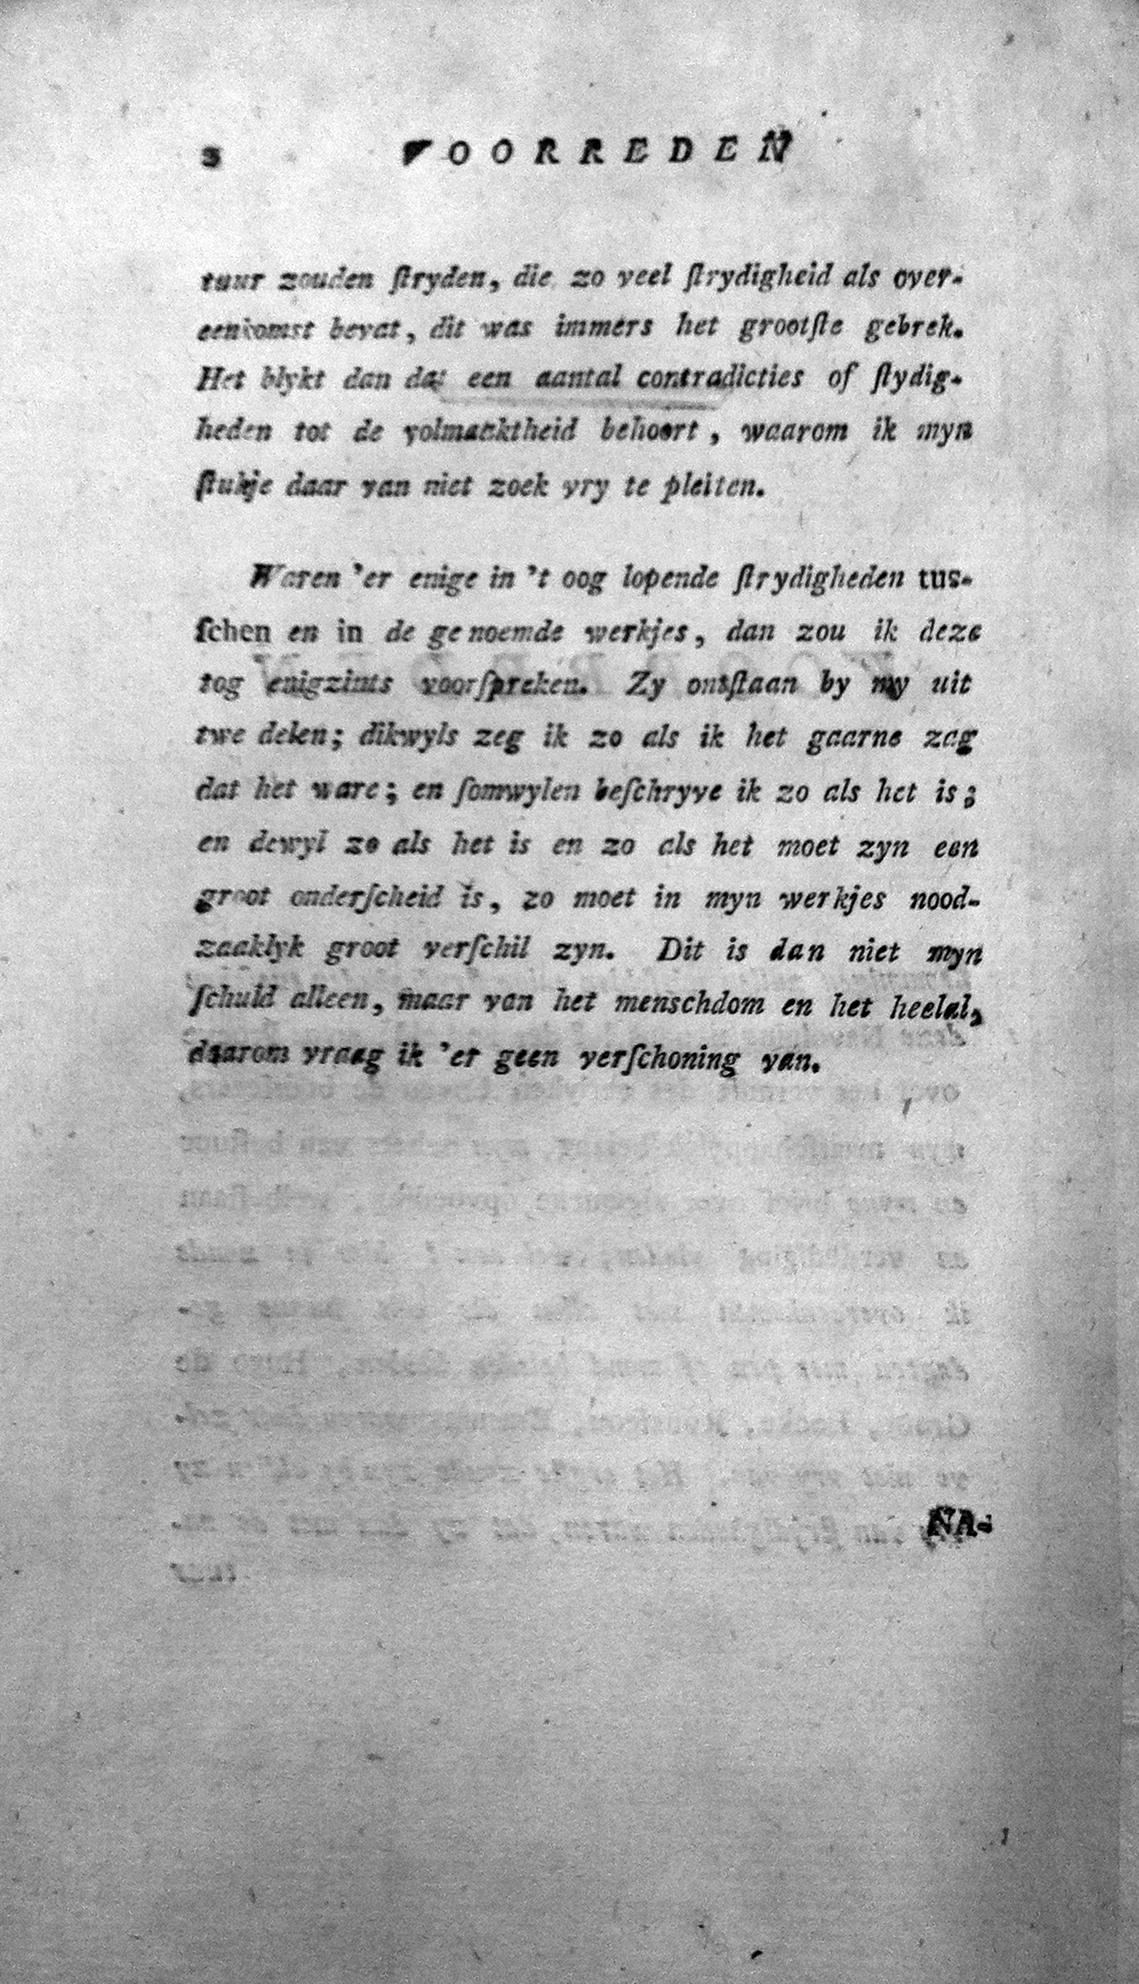 2 VOORREDEN
tuur zouden ſtryden, die zo veel ſtrydigheid als over-
eenkomst bevat, dit was immers het grootſte gebrek.
Het blykt dan dat een aantal contradicties of ſtydig-
heden tot de volmaaktheid behoort, waarom ik myn
ſtukje daar van niet zoek vry te pleiten.
Waren 'er enige in 't oog lopende ſtrydigheden tus-
ſchen en in de genoemde werkjes, dan zou ik deze
tog enigzints voorſpreken. Zy ontſtaan by my uit
twe delen; dikwyls zeg ik zo als ik het gaarne zag
dat het ware; en ſomwylen beſchryve ik zo als het is;
en dewyl zo als het is en zo als het moet zyn een
groot onderſcheid is, zo moet in myn werkjes nood-
zaaklyk groot verſchil zyn. Dit is dan niet myn
ſchuld alleen, maar van het menschdom en het heelal,
daarom vraag ik 'er geen verſchoning van.
NA-